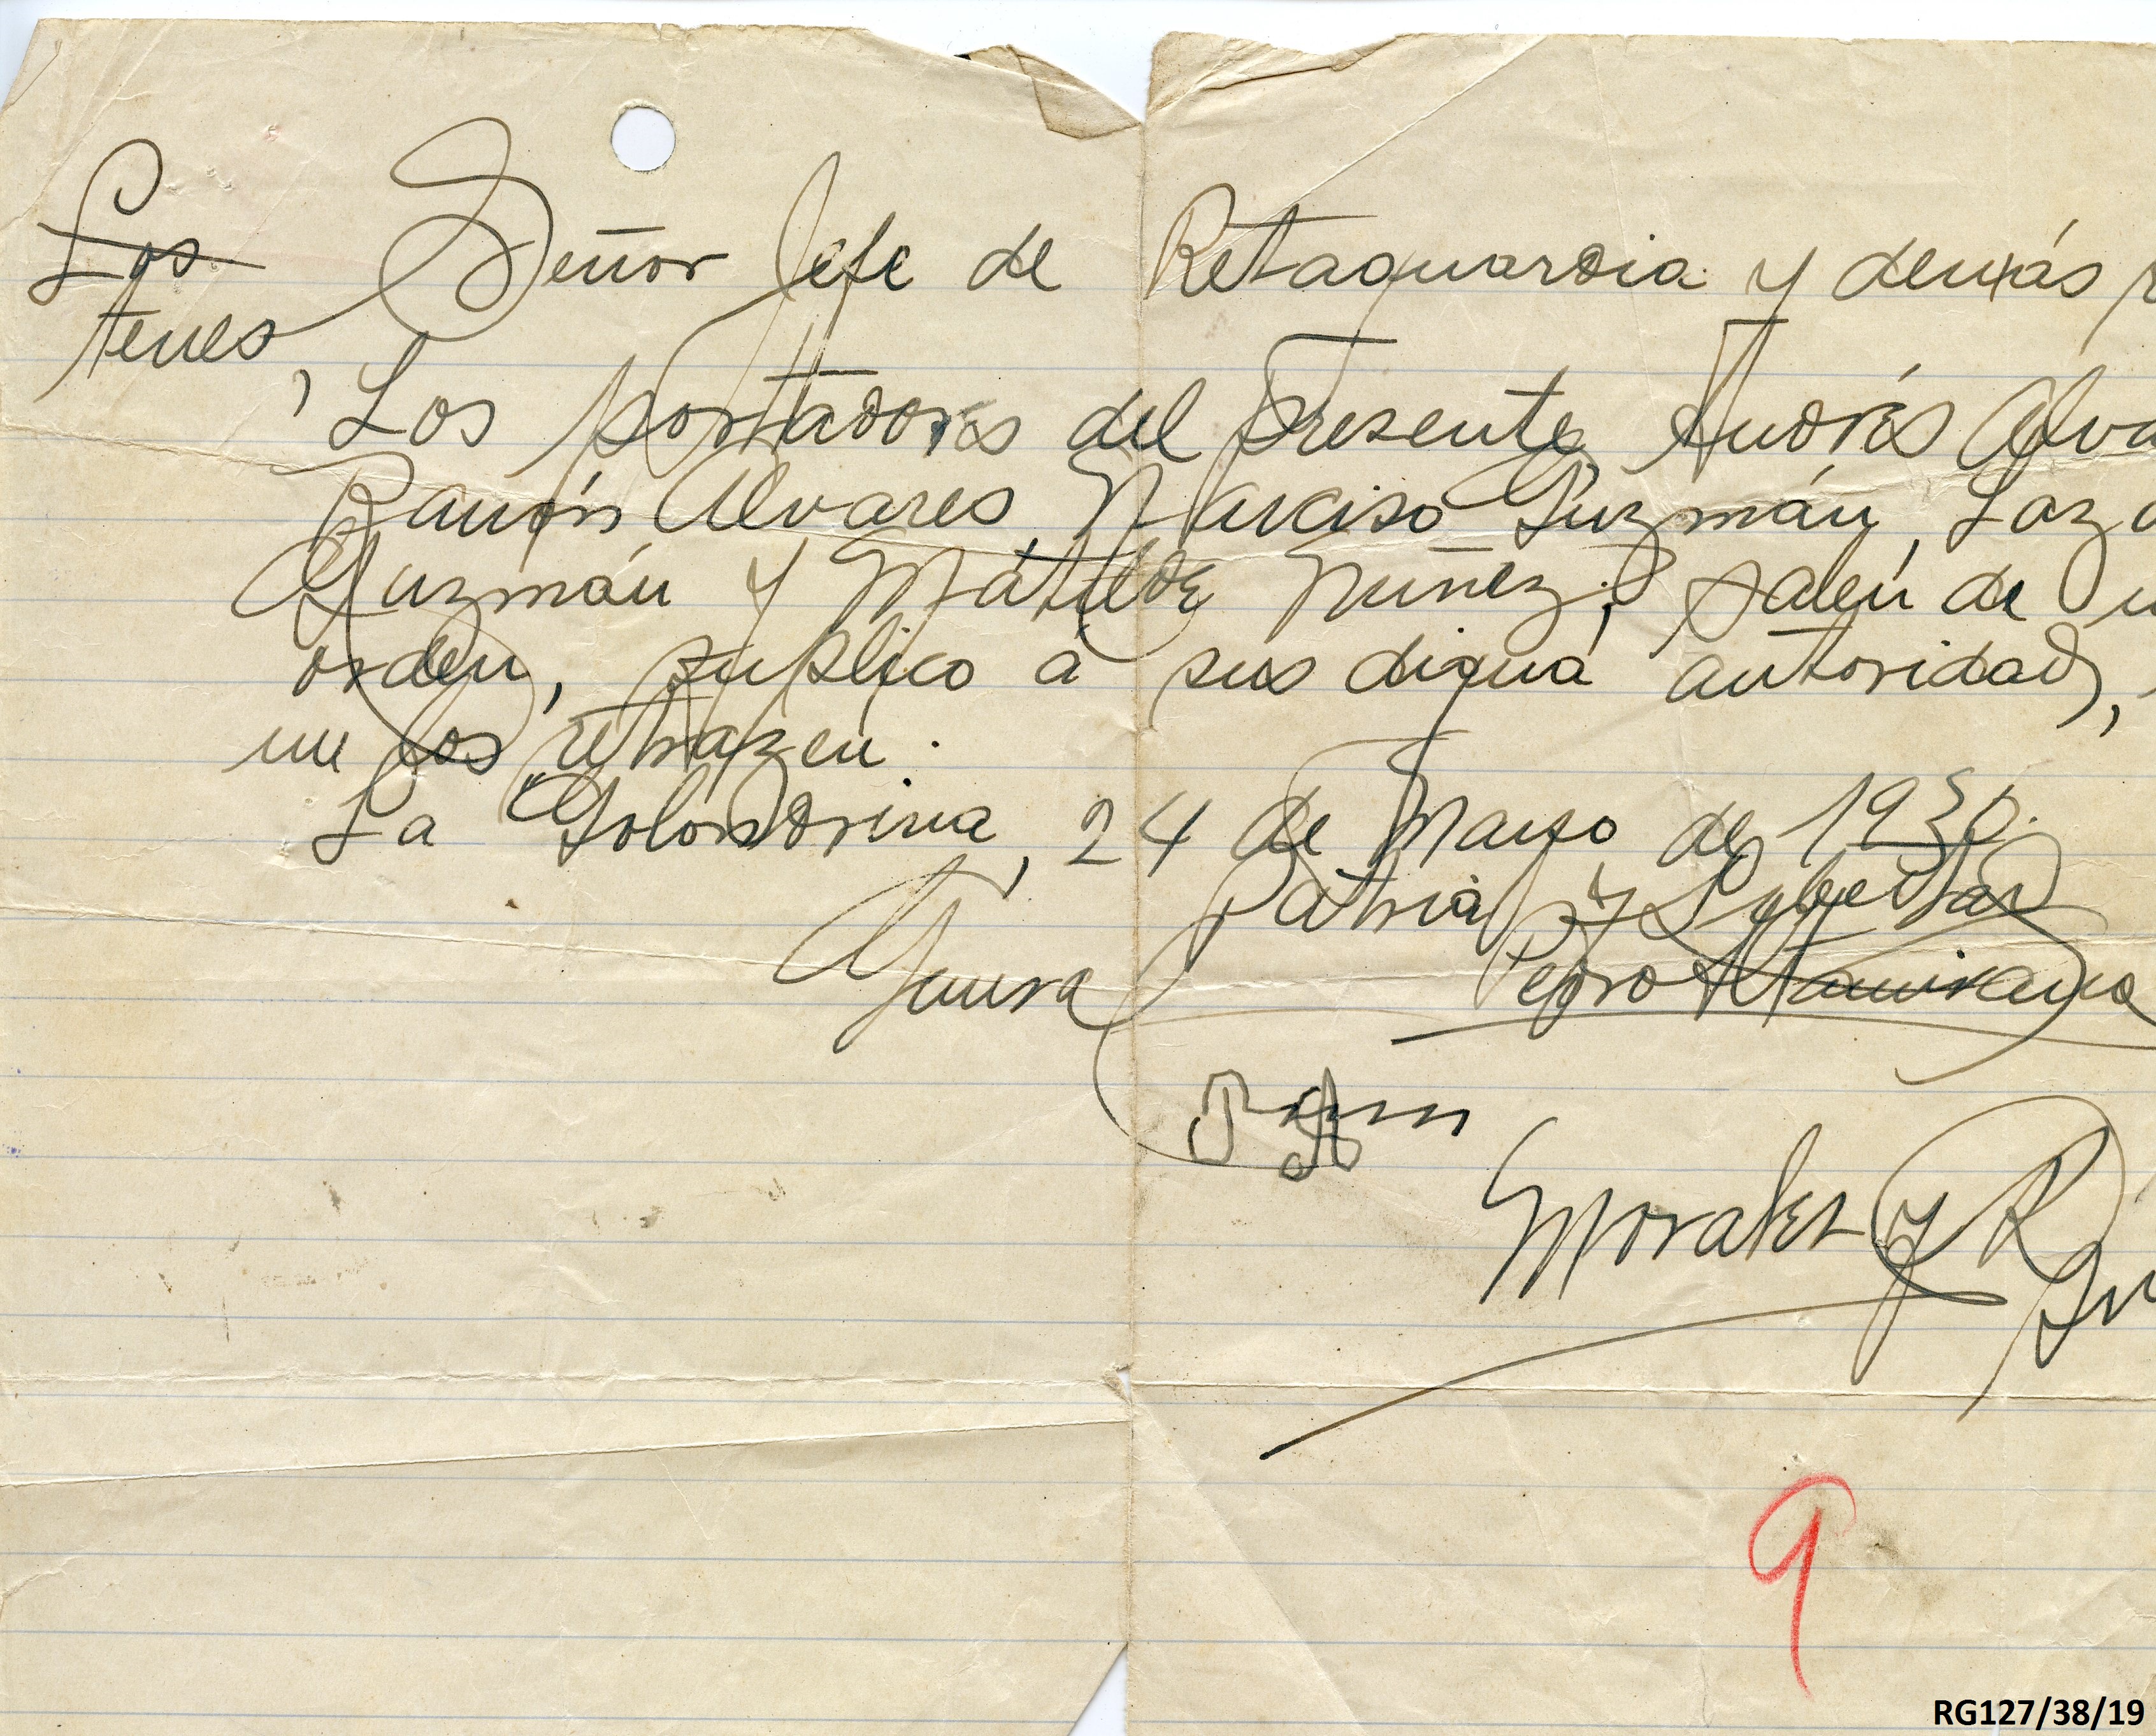 Los Señor Jefe de Retaguardia y demás
tenes,
Los portadores del presente Andrés Alva
Ramón Alvares, Narciso Guzmán, Laza
Guzmán y Matilde Nuñez; Salen de
orden, suplico a sus digna autoridad,
me los retrazen.
La Golondrina, 24 de Mayo de 1930.
Patria y Libertad
Pedro Altamirano
Morales y R
9
RG127/38/19